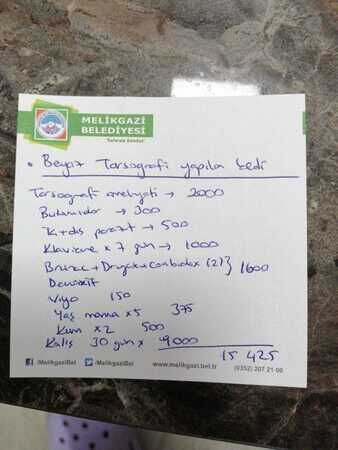 MELİKGAZİ
BELEDİYESİ
• Beyaz Tarsografi yapılan kedi
Tarsografi ameliyatı → 2000
→ 300
İç dış parazit → 500
Klavicine x 7 gün → 1000
+ + (2) } 1600
150
Yaş mama x5 375
Kum x2 500
Kalış 30 gün x 9000
15 425
/MelikgaziBel /MelikgaziBel www.melikgazi.bel.tr (0352) 207 21 00